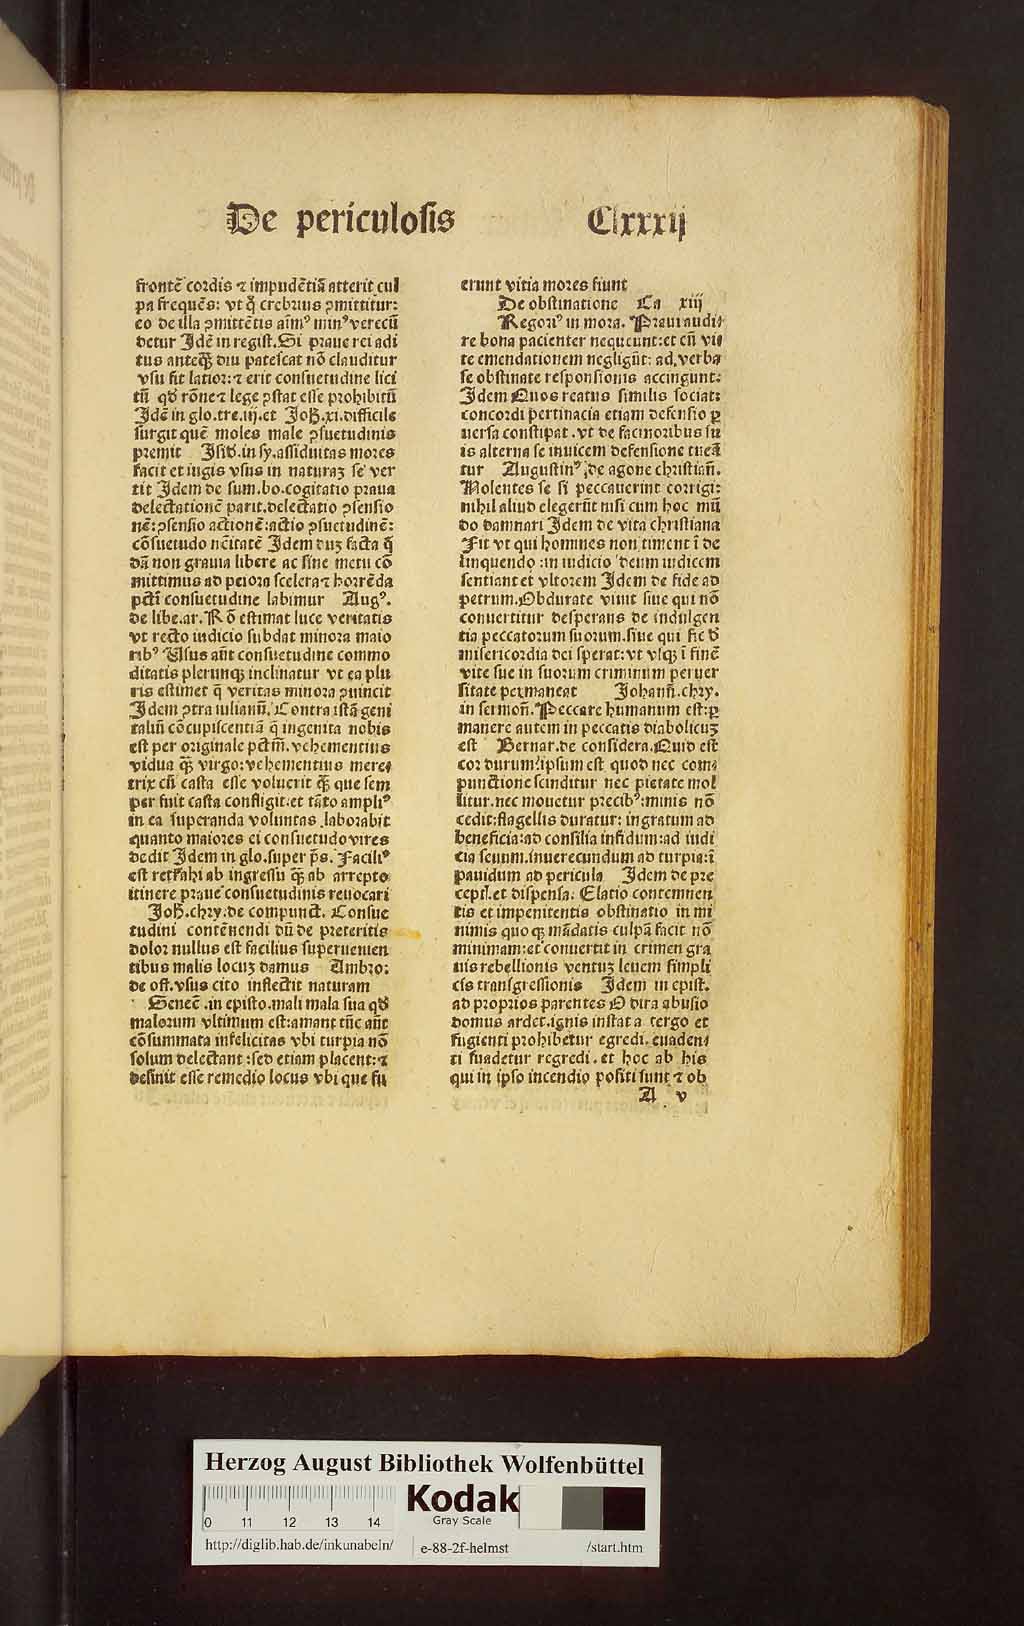 De periculosis Clxxxij
frontē cordis ⁊ impudētiā atterit cul
pa frequēs: vt q̄ crebrius ꝯmittitur:
eo de illa ꝯmittētis aīmꝰ minꝰ verecū
detur Idē in regist. Si praue rei adi
tus anteqꝫ̄ diu patescat nō clauditur
vsu fit latior: ⁊ erit consuetudine lici
tū qd̄ rōne ⁊ lege ꝯstat esse prohibitū
Idē in glo. tre. iij. et Joh̄. xi. difficile
surgit quē moles male ꝯsuetudinis
premit Jsid̄. in sy. assiduitas mores
facit et iugis vsus in naturaꝫ se ver
tit Idem de sum. bo. cogitatio praua
delectationē parit. delectatio ꝯsensio
nē: ꝯsensio actionē: actio ꝯsuetudinē:
cōsuetudo nc̄itatē Idem duꝫ facta q̄
dā non grauia libere ac sine metu cō
mittimus ad peiora scelera ⁊ horrēda
pctī consuetudine labimur Augꝰ.
de libe. ar. Rō estimat luce veritatis
vt recto iudicio subdat minora maio
ribꝰ Usus aūt consuetudine commo
ditatis plerunqꝫ inclinatur vt ea plu
ris estimet q̄ veritas minora ꝯuincit
Idem ꝯtra iulianū. Contra istā geni
taliū cōcupiscentiā q̄ ingenita nobis
est per originale pctm̄. vehementius
vidua qꝫ̄ virgo: vehementius mere⸗
trix cū casta esse voluerit qꝫ̄ que sem
per fuit casta confligit: et tāto ampliꝰ
in ea superanda voluntas laborabit
quanto maiores ei consuetudo vires
dedit Idem in glo. super p̄s. Faciliꝰ
est retrahi ab ingressu qꝫ̄ ab arrepto
itinere praue consuetudinis reuocari
Joh̄. chry. de compunct. Consue
tudini contēnendi dū de preteritis
dolor nullus est facilius superuenien
tibus malis locuꝫ damus Ambro:
de off. vsus cito inflectit naturam
Senec̄. in episto. mali mala sua qd̄
malorum vltimum est: amant tūc aūt
cōsummata infelicitas vbi turpia nō
solum delectant: sed etiam placent: ⁊
desinit esse remedio locus vbi que fu
erunt vitia mores fiunt
De obstinatione Ca xiij
Regoriꝰ in mora. Praui audi⸗
re bona pacienter nequeunt: et cū vi⸗
te emendationem negligūt: ad verba
se obstinate responsionis accingunt:
Idem Quos reatus similis sociat:
concordi pertinacia etiam defensio ꝑ
uersa constipat. vt de facinoribus su
is alterna se inuicem defensione tueā
tur Augustinꝰ de agone christiañ.
Nolentes se si peccauerint corrigi:
nihil aliud elegerūt nisi cum hoc mū
do damnari Idem de vita christiana
Fit vt qui homines non timent ī de
linquendo: in iudicio deum iudicem
sentiant et vltorem Idem de fide ad
petrum. Obdurate viuit siue qui nō
conuertitur desperans de indulgen
tia peccatorum suorum. siue qui sic d̄
misericordia dei sperat: vt vsqꝫ ī finē
vite sue in suorum criminum peruer
sitate permaneat Johanñ. chry.
in sermoñ. Peccare humanum est: ꝑ
manere autem in peccatis diabolicuꝫ
est Bernar. de considera. Quid est
cor durum? ipsum est quod nec com⸗
punctione scinditur nec pietate mol
litur. nec mouetur precibꝰ: minis nō
cedit: flagellis duratur: ingratum ad
beneficia: ad consilia infidum: ad iudi
cia seuum. inuerecundum ad turpia: ī
pauidum ad pericula Idem de pre
cepti. et dispensa. Elatio contemnen
tis et impenitentis obstinatio in mi
nimis quoqꝫ mādatis culpā facit nō
minimam: et conuertit in crimen gra
uis rebellionis ventuꝫ leuem simpli
cis transgressionis Idem in epist.
ad proprios parentes O dira abusio
domus ardet. ignis instat a tergo et
fugienti prohibetur egredi. euaden⸗
ti suadetur regredi. et hoc ab his
qui in ipso incendio positi sunt ⁊ ob
A v
Herzog August Bibliothek Wolfenbüttel
0 11 12 13 14
Kodak
Gray Scale
http://diglib.hab.de/inkunabeln/ e-88-2f-helmst /start.htm